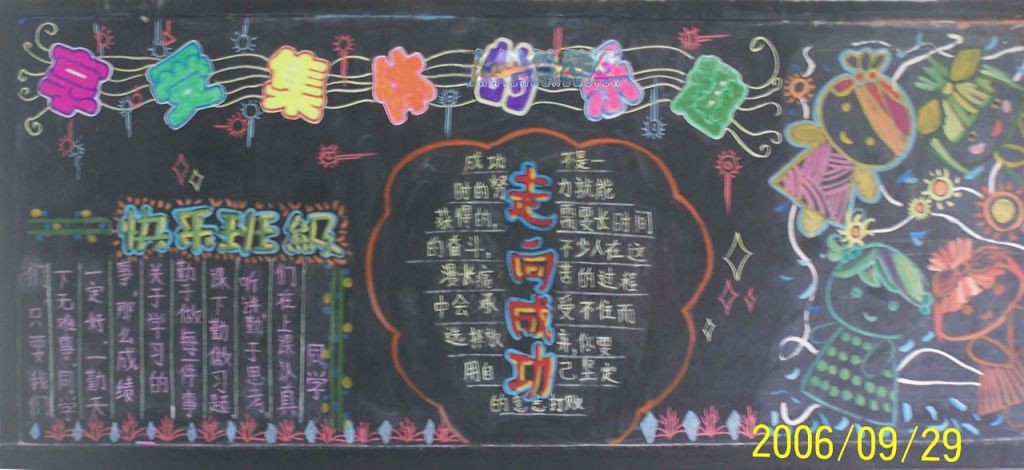 集
快乐班级
同学
们在上课认真
听讲,勤于思考
课下勤做习题
勤于做每件事
关于学习的
事,那么成绩
一定行,一勤天
下无难事,同学
们,只要我们
走向成功
成功 不是一
时的努 力就能
获得的, 需要长时间
的奋斗。 不少人在这
漫长痛 苦的过程
中会承 受不住而
选择放 弃,你要
用自 己坚定
的意志打败
2006/09/29